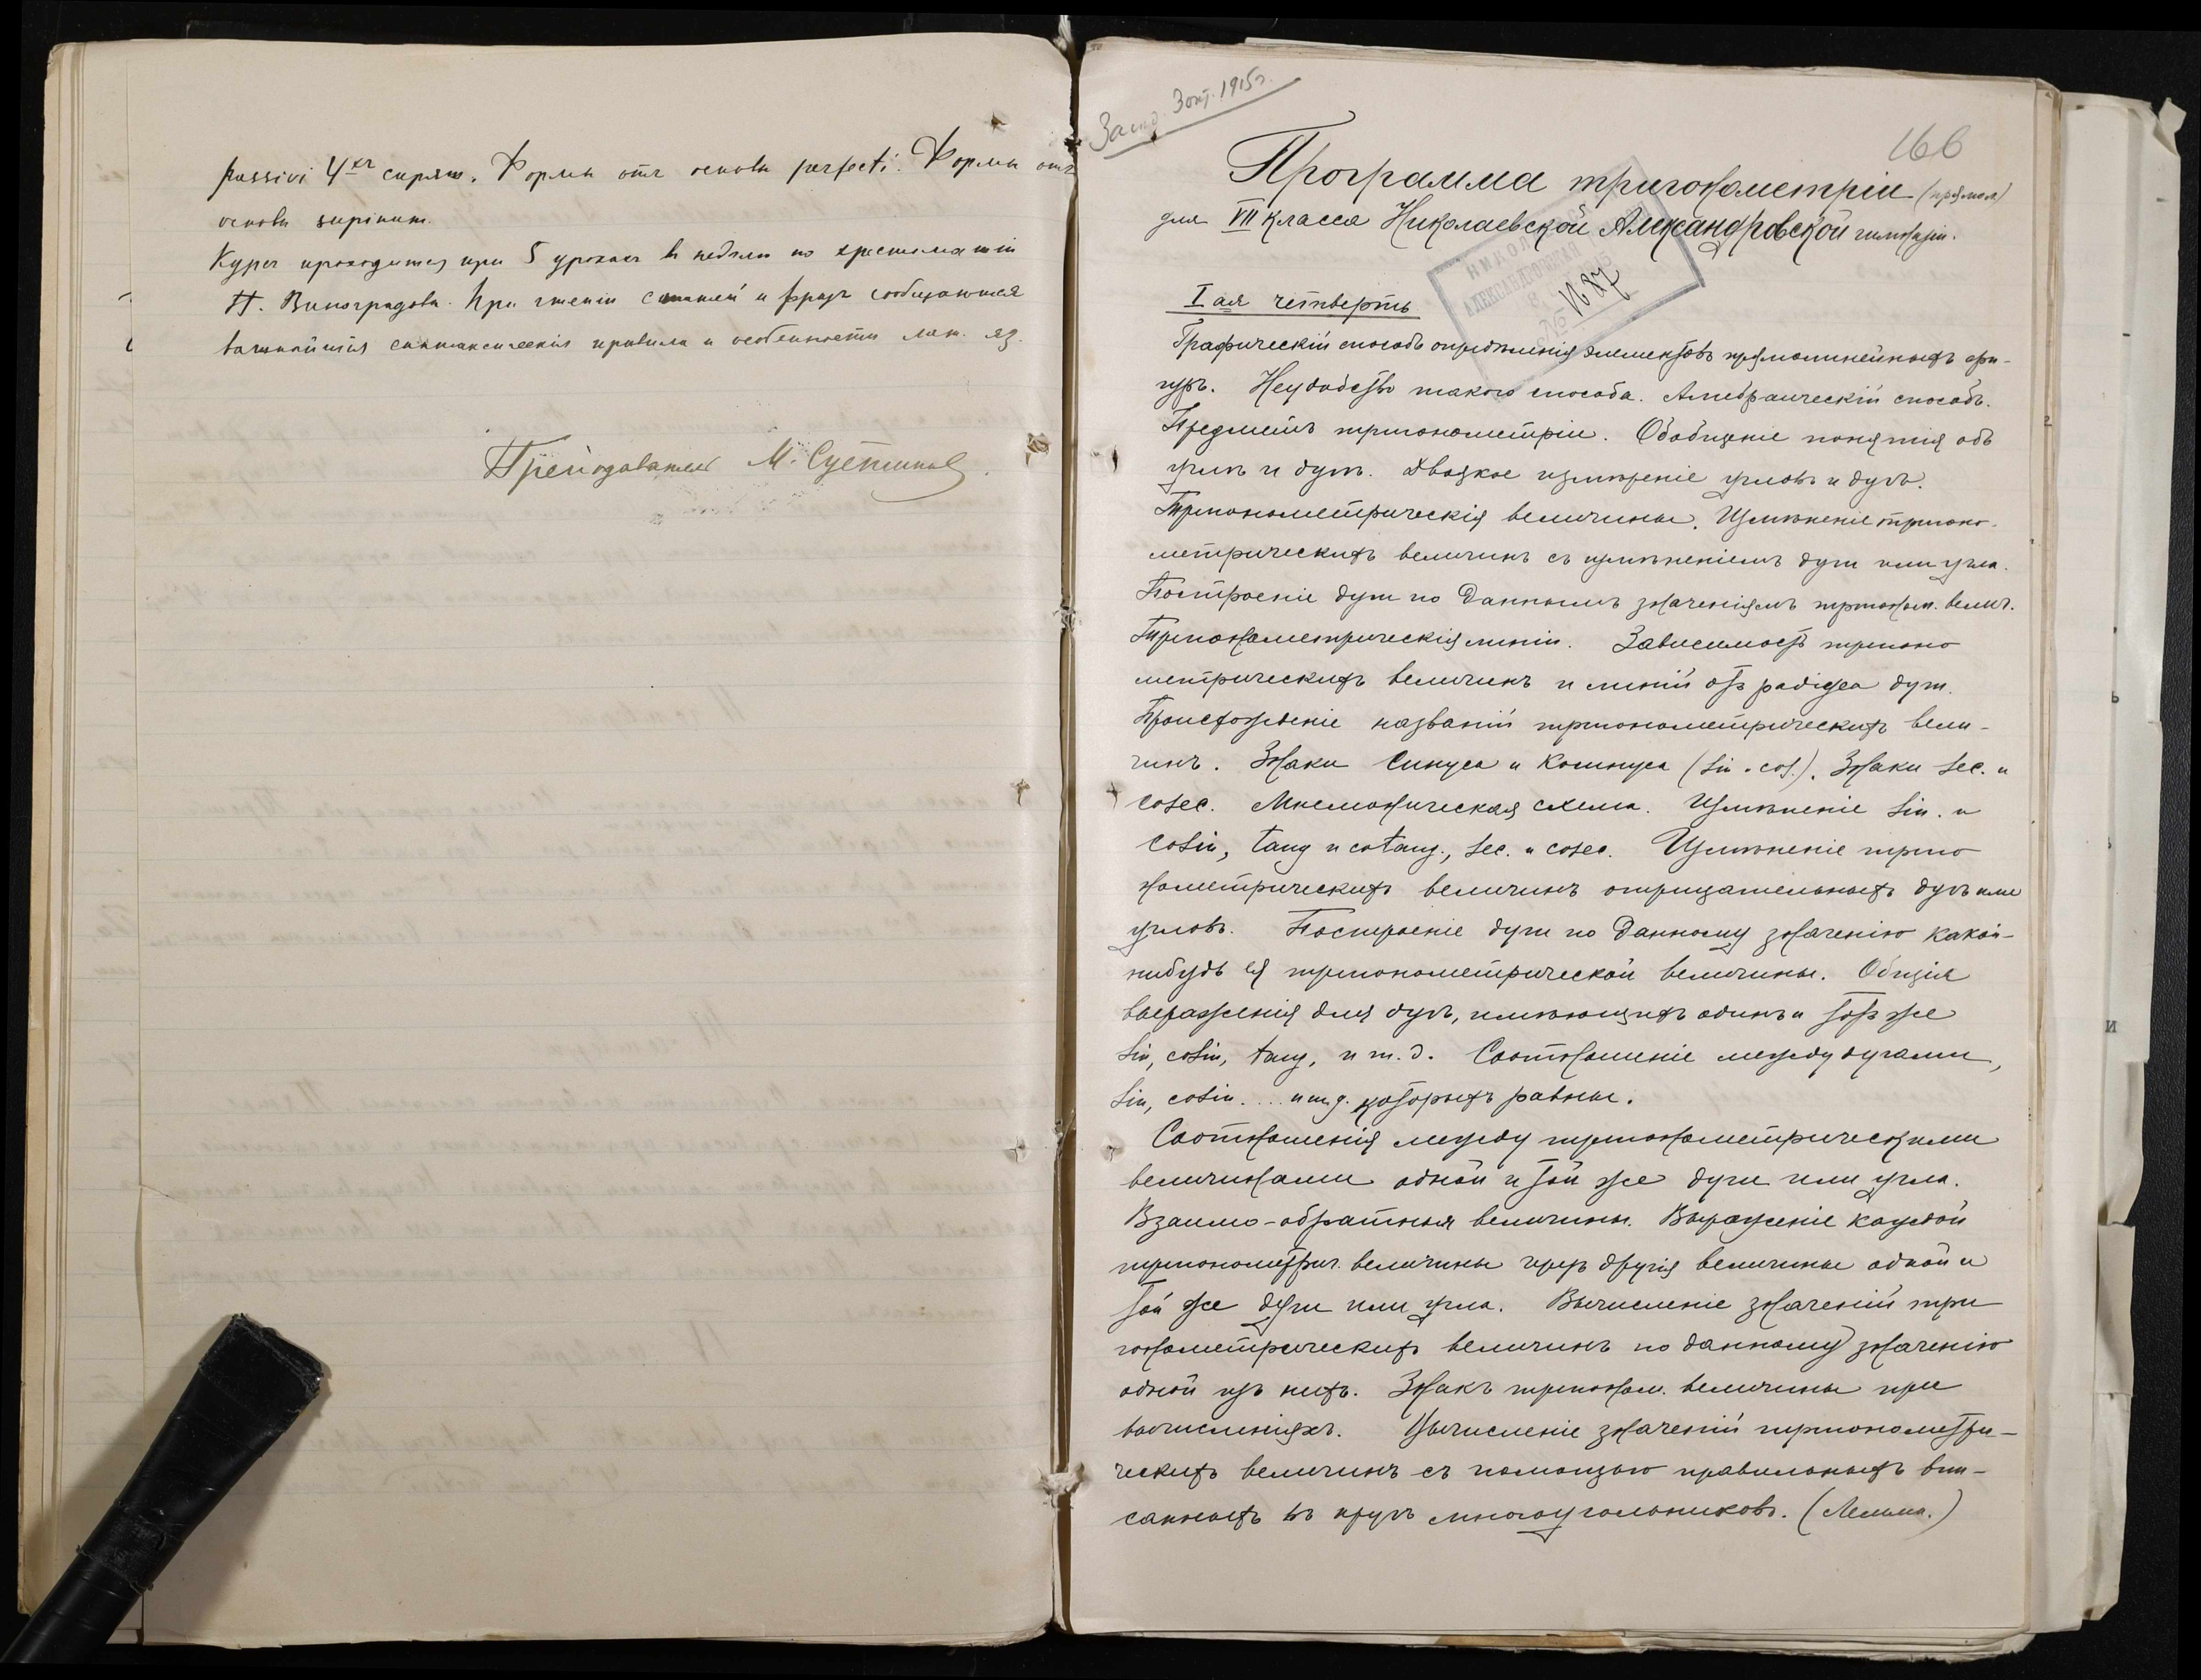 passivi 4хъ спряж. Формы отъ основы perfecti. Формы отъ
основы supinum.
Курсъ проходится при 5 урокахъ въ недѣлю по хрестоматіи
Н. Виноградова. При чтеніи статей и фразъ сообщаются
важнѣйшія синтаксическія правила и особенности лат. яз.
Преподаватель М.
3 окт. 1915 г.
166
Программа тригонометріи (прямол.)
для VII класса Николаевской Александровской гимназіи.
№ 1187
I ая четверть
Графическій способъ опредѣленія элементовъ прямолинейныхъ фи-
гуръ. Неудобство такого способа. Алгебраическій способъ.
Предметъ тригонометріи. Обобщеніе понятія объ
углѣ и дугѣ. Двоякое измѣреніе угловъ и дугъ.
Тригонометрическія величины. Измѣненіе тригоно-
метрическихъ величинъ съ измѣненіемъ дуги или угла.
Построеніе дуги по даннымъ значеніямъ тригоном. велич.
Тригонометрическія линіи. Зависимость тригоно
метрическихъ величинъ и линій отъ радіуса дуги.
Происхожденіе названій тригонометрическихъ вели-
чинъ. Знаки Синуса и Косинуса (Sin. cos.). Знаки Sec. и
cosec. Мнемоническая схема. Измѣненіе Sin. и
Cosin, tang и cotang., Sec. и cosec. Измѣненіе триго
нометрическихъ величинъ отрицательныхъ дугъ или
угловъ. Построеніе дуги по данному значенію какой-
нибудь ея тригонометрической величины. Общія
выраженія для дугъ, имѣющихъ одинъ и тотъ же
Sin, cosin, tang, и т. д. Соотношеніе между дугами,
Sin, cosin.... и т. д. которыхъ равны.
Соотношенія между тригонометрическими
величинами одной и той же дуги или угла.
Взаимо-обратныя величины. Выраженіе каждой
тригонометрич. величины чрезъ другія величины одной и
той же дуги или угла. Вычисленіе значеній три
гонометрическихъ величинъ по данному значенію
одной изъ нихъ. Знакъ тригоном. величины при
вычисленіяхъ. Вычисленіе значеній тригонометри-
ческихъ величинъ съ помощью правильныхъ впи-
санныхъ въ кругъ многоугольниковъ. (Лемма.)